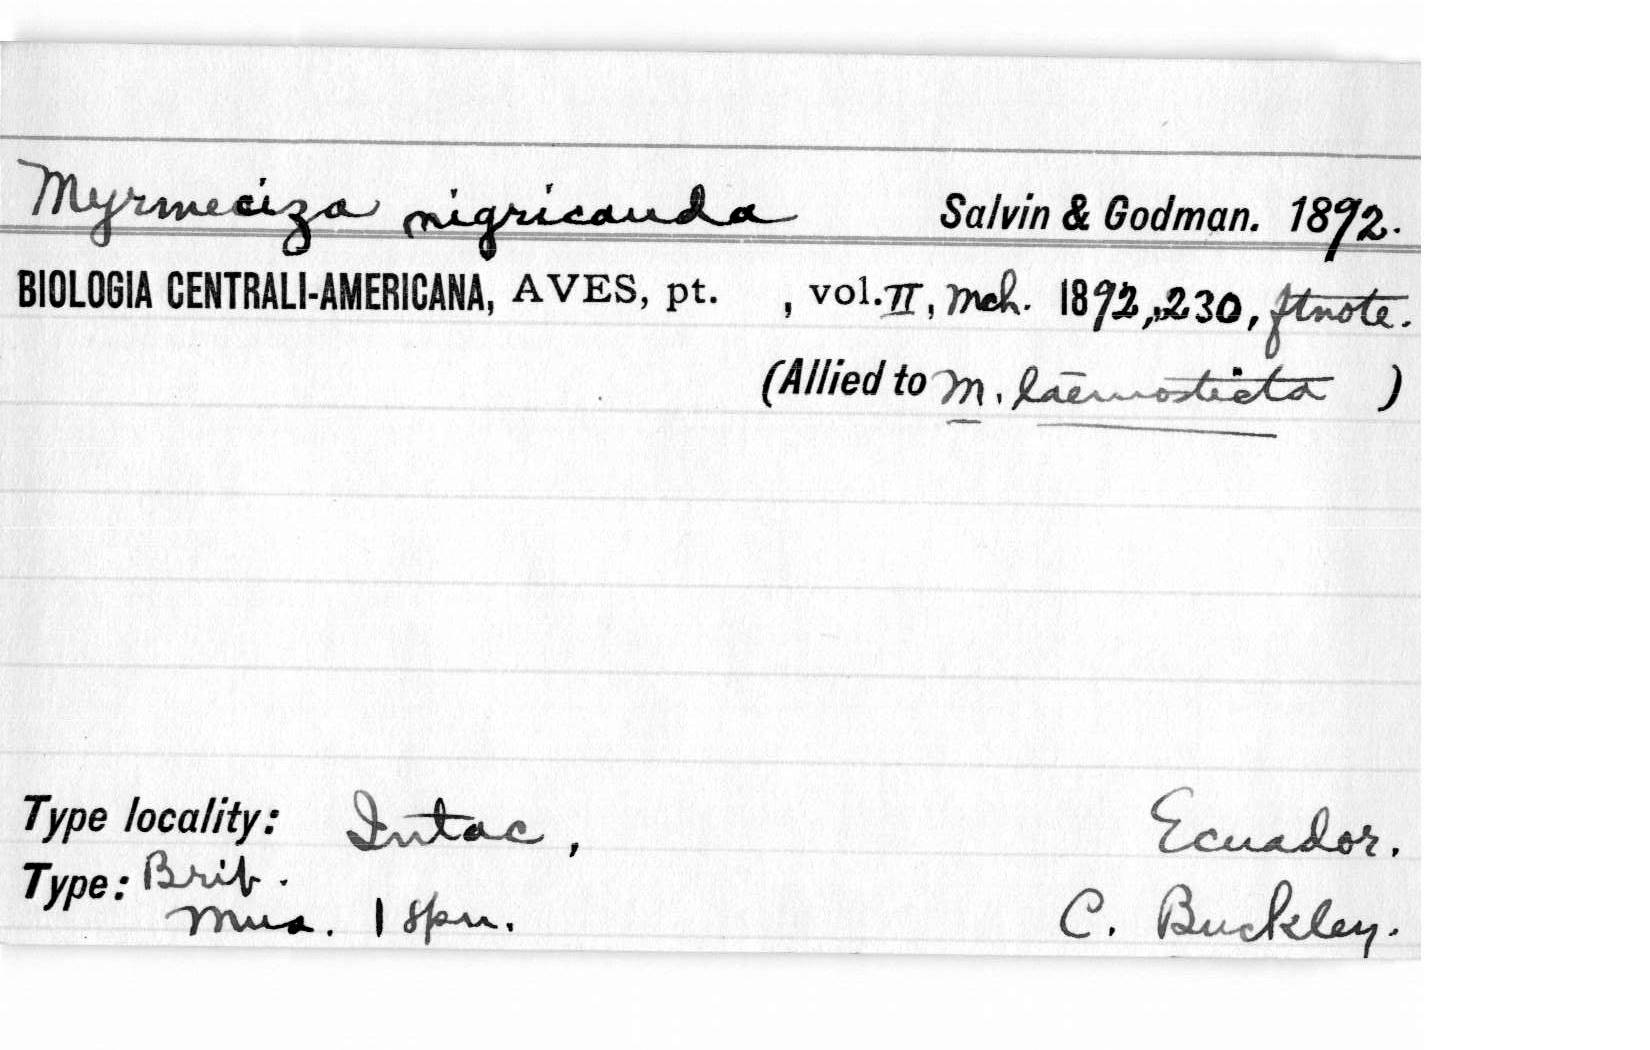 Myrmeciza nigricauda Salvin & Godman. 1892.
BIOLOGIA CENTRALI-AMERICANA, AVES, pt. , vol. II, Mch. 1892, 230, ftnote.
(Allied to M. laemosticta )
Type locality: Intac, Ecuador.
Type: Brit.
Mus. 1 spn. C. Buckley.